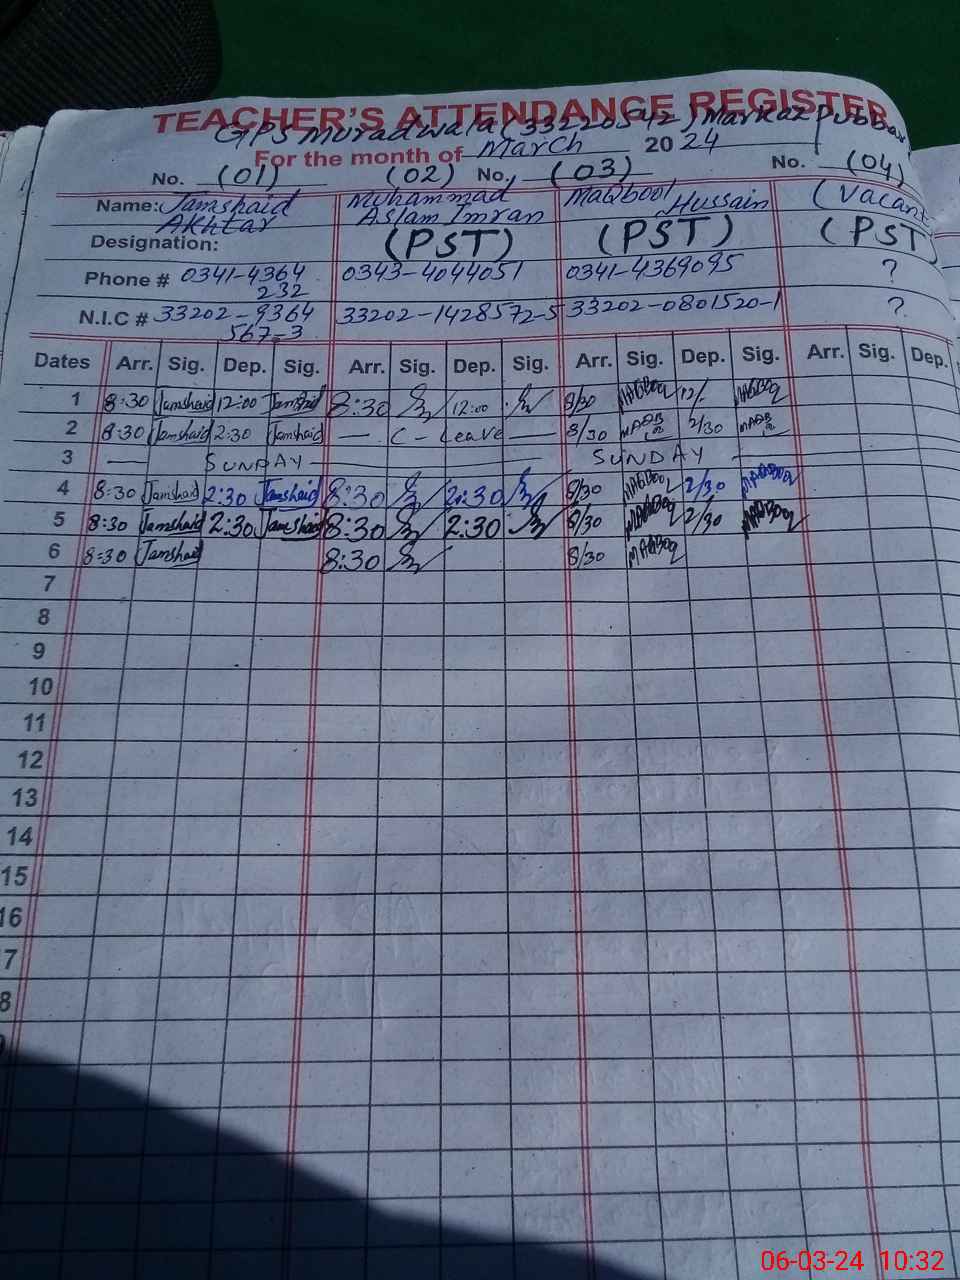 TEACHER'S ATTENDANCE REGISTER
GPS Muradwala (33220542) Markaz
For the month of March 2024
No. (01) (02) No. (03) No. (04)
Name: Jamshaid Akhtar Muhammad Aslam Imran MaQbool Hussain (Vacant
Designation: (PST) (PST) (PST)
Phone # 0341-4364232 0343-4044051 0341-4369095 ?
N.I.C # 33202-9364567-3 33202-1428572-5 33202-0801520-1 ?
Dates Arr. Sig. Dep. Sig. Arr. Sig. Dep. Sig. Arr. Sig. Dep. Sig. Arr. Sig. Dep.
1 8:30 Jamshaid 12:00 Jamshaid 8:30 12:00 8/30 MAQBOOL 12/- MAQBOOL
2 8:30 Jamshaid 2:30 Jamshaid — C - Leave — 8/30 2/30
3 — SUNDAY — SUNDAY —
4 8:30 Jamshaid 2:30 Jamshaid 8:30 2:30 8/30 MAQBOOL 2/30 MAQBOOL
5 8:30 Jamshaid 2:30 Jamshaid 8:30 2:30 8/30 MAQBOOL 2/30 MAQBOOL
6 8:30 Jamshaid 8:30 8/30 MAQBOOL
7
8
9
10
11
12
13
14
15
16
7
8
06-03-24 10:32